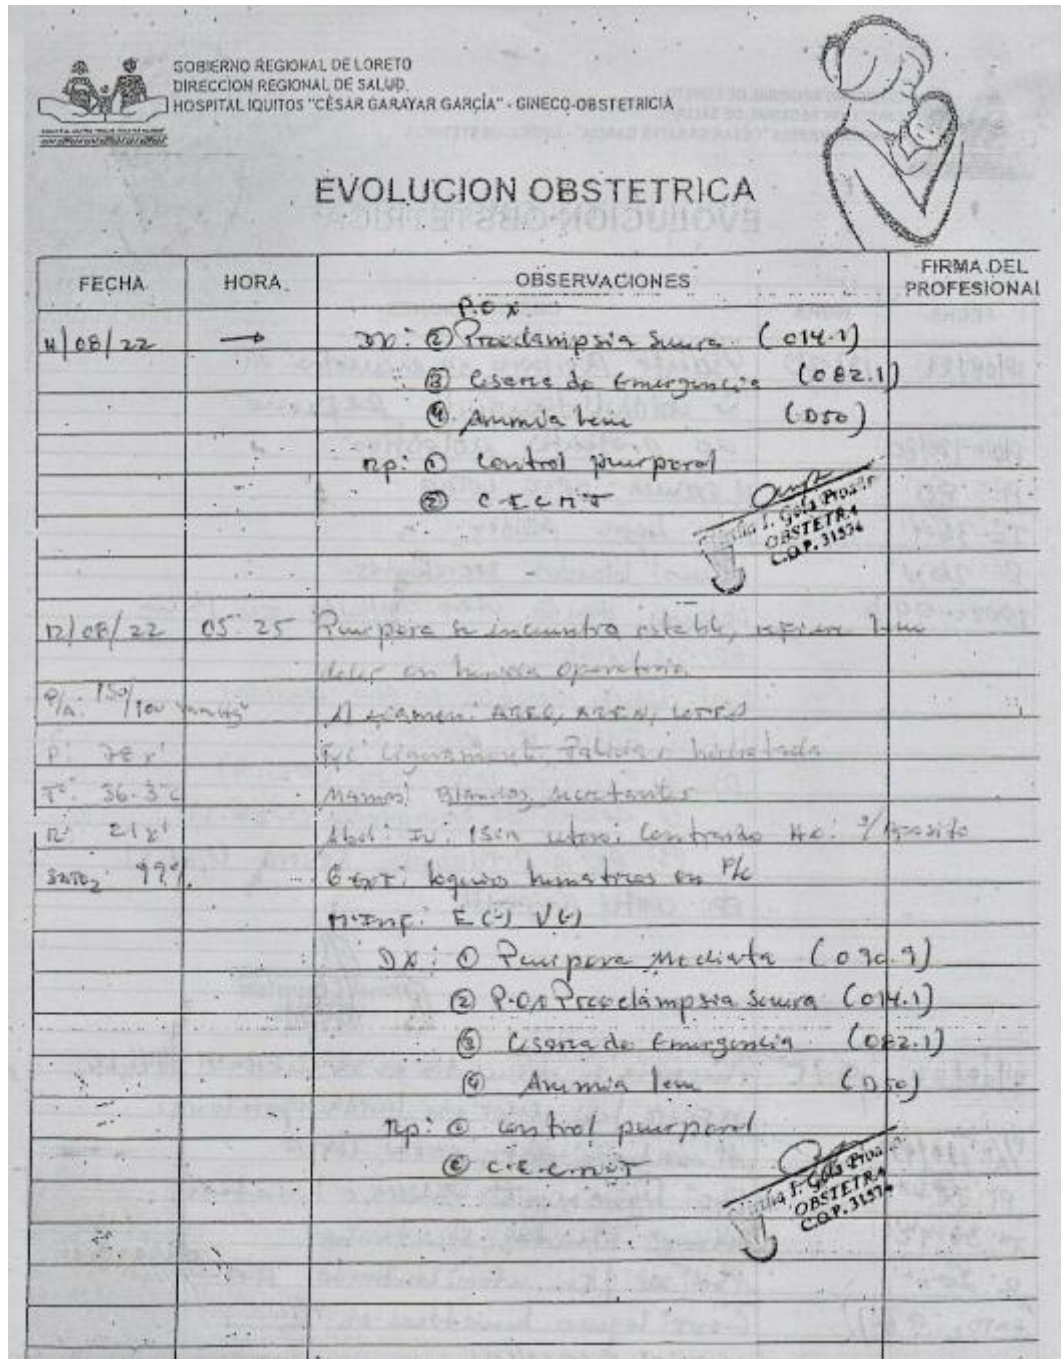 GOBIERNO REGIONAL DE LORETO
DIRECCION REGIONAL DE SALUD
HOSPITAL IQUITOS "CÉSAR GARAYAR GARCÍA" - GINECO-OBSTETRICIA
EVOLUCION OBSTETRICA
FECHA HORA OBSERVACIONES FIRMA DEL PROFESIONAL
P.O X
11/08/22 → DX: ② Preeclampsia Severa (O14.1)
③ Cesarea de Emergencia (O82.1)
④ Anemia leve (D50)
Rp: ① Control puerperal
② C.E.C.M.T
OBSTETRA
C.O.P. 31534
12/08/22 05:25 Puerpera se encuentra estable, refiere leve
dolor en herida operatoria
P/A: 150/100 mmHg Al examen: AREG, AREN, LOTEP
P: 78 x' Piel ligeramente Palida e hidratada
T°: 36.3°C Mamas: Blandas, secretantes
R: 21 x' Abd: IU: 15cm utero: Contraido H.O: c/Aposito
SatO2 99% G. Ext: loquios hematicos en P/C
M. Inf: E(-) V(-)
DX: ① Puerpera Mediata (O90.9)
② P.O.X Preeclampsia Severa (O14.1)
③ Cesarea de Emergencia (O82.1)
④ Anemia leve (D50)
Rp: ① Control puerperal
② C.E.C.M.T
OBSTETRA
C.O.P. 31534